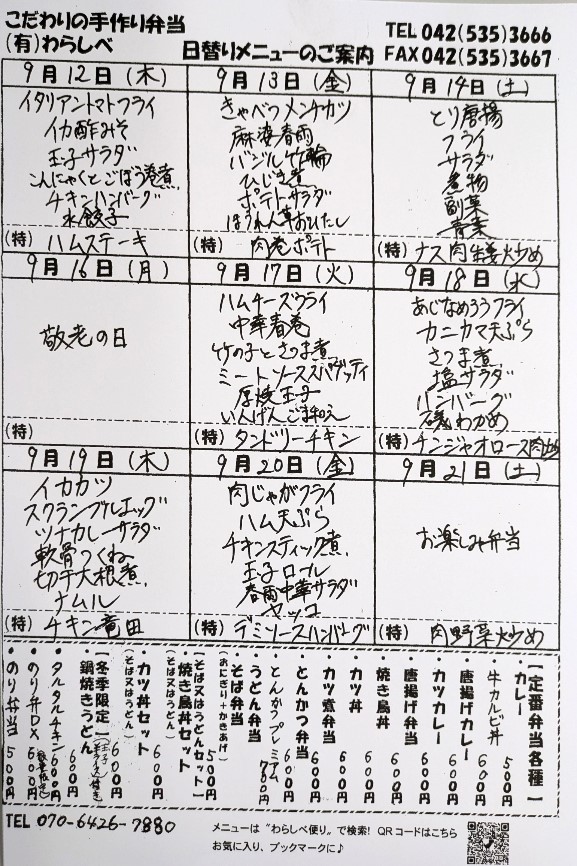 こだわりの手作り弁当
(有)わらしべ
日替りメニューのご案内
TEL 042(535)3666
FAX 042(535)3667
9月12日(木)
イタリアントマトフライ
イカ酢みそ
玉子サラダ
こんにゃくとごぼう巻煮
チキンハンバーグ
水餃子
(特) ハムステーキ
9月13日(金)
きゃべつメンチカツ
麻婆春雨
バジル竹輪
ひじき煮
ポテトサラダ
ほうれん草おひたし
(特) 肉巻ポテト
9月14日(土)
とり唐揚
フライ
サラダ
煮物
副菜
青菜
(特) ナス肉生姜炒め
9月16日(月)
敬老の日
(特)
9月17日(火)
ハムチーズフライ
中華春巻
竹の子とさつま煮
ミートソーススパゲッティ
厚焼玉子
いんげんごま和え
(特) タンドリーチキン
9月18日(水)
あじなめろうフライ
カニカマ天ぷら
さつま煮
塩サラダ
ハンバーグ
磯わかめ
(特) チンジャオロース肉炒め
9月19日(木)
イカカツ
スクランブルエッグ
ツナカレーサラダ
軟骨つくね
切干大根煮
ナムル
(特) チキン竜田
9月20日(金)
肉じゃがフライ
ハム天ぷら
チキンスティック煮
玉子ロール
春雨中華サラダ
ヤッコ
(特) デミソースハンバーグ
9月21日(土)
お楽しみ弁当
(特) 肉野菜炒め
【定番弁当各種】
・カレー 500円
・牛カルビ丼 600円
・唐揚げカレー 600円
・カツカレー 600円
・唐揚げ弁当 600円
・焼き鳥丼 600円
・カツ丼 600円
・カツ煮弁当 600円
・とんかつ弁当 600円
・とんかつプレミアム 700円
・うどん弁当
・そば弁当
(おにぎり+かきあげ) 500円
【そば又はうどんセット】
・焼き鳥丼セット
(そば又はうどん) 600円
・カツ丼セット
(そば又はうどん) 600円
【冬季限定】
・鍋焼きうどん 600円
・タルタルチキン 600円
・のり弁DX 600円
・のり弁当 500円
TEL 070-6426-7880
メニューは"わらしべ便り"で検索! QRコードはこちら
お気に入り、ブックマークに♪